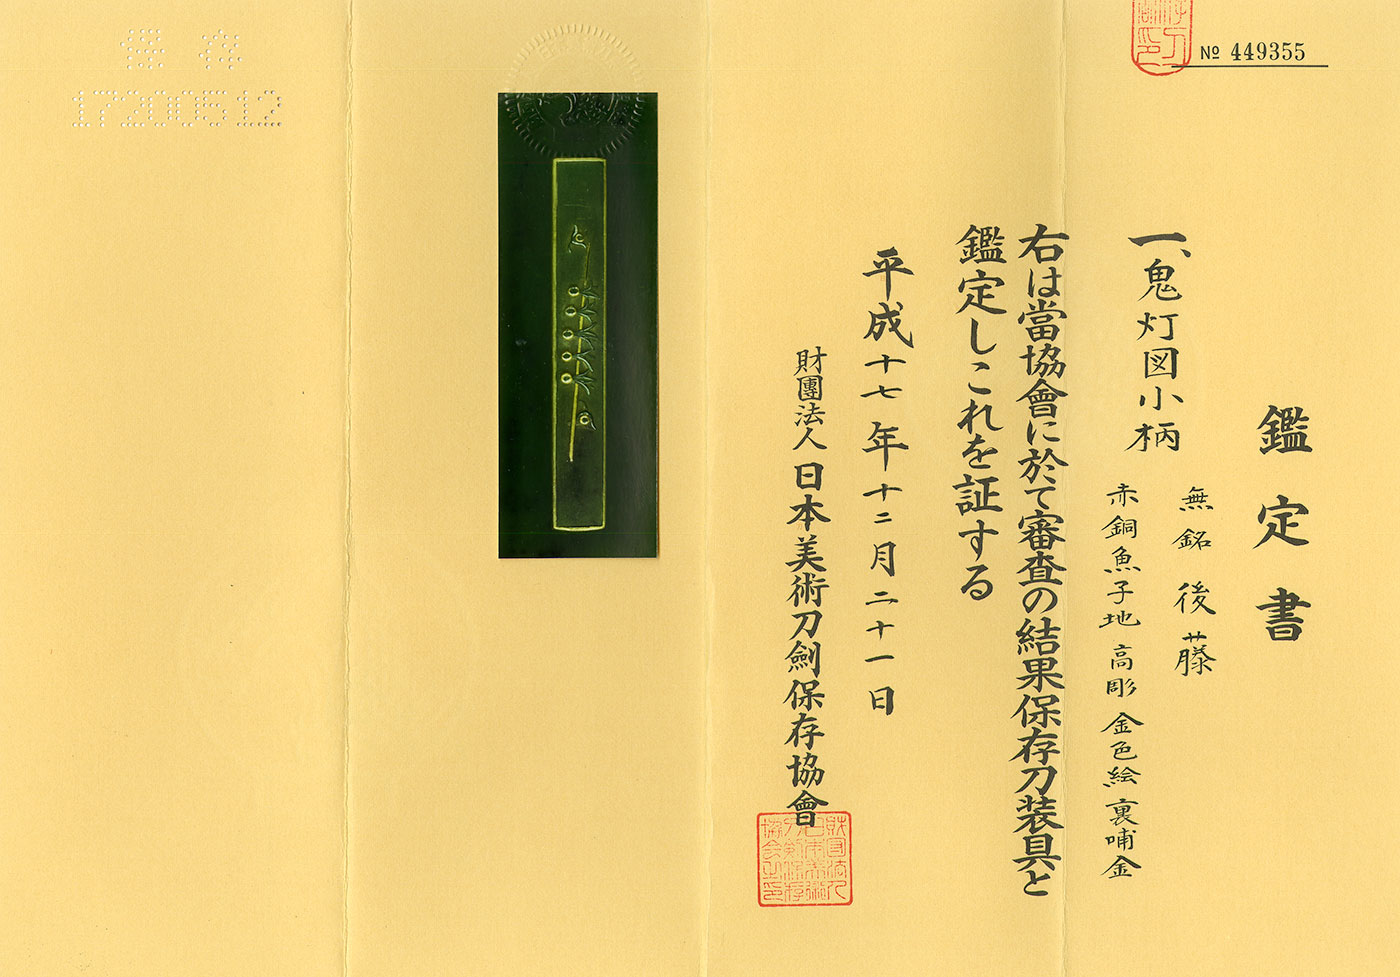 № 449355
鑑定書
一、鬼灯図小柄
無銘 後藤
赤銅魚子地 高彫 金色絵 裏哺金
右は當協會に於て審査の結果保存刀装具と
鑑定しこれを証する
平成十七年十二月二十一日
財團法人 日本美術刀劍保存協會
保存
17200512